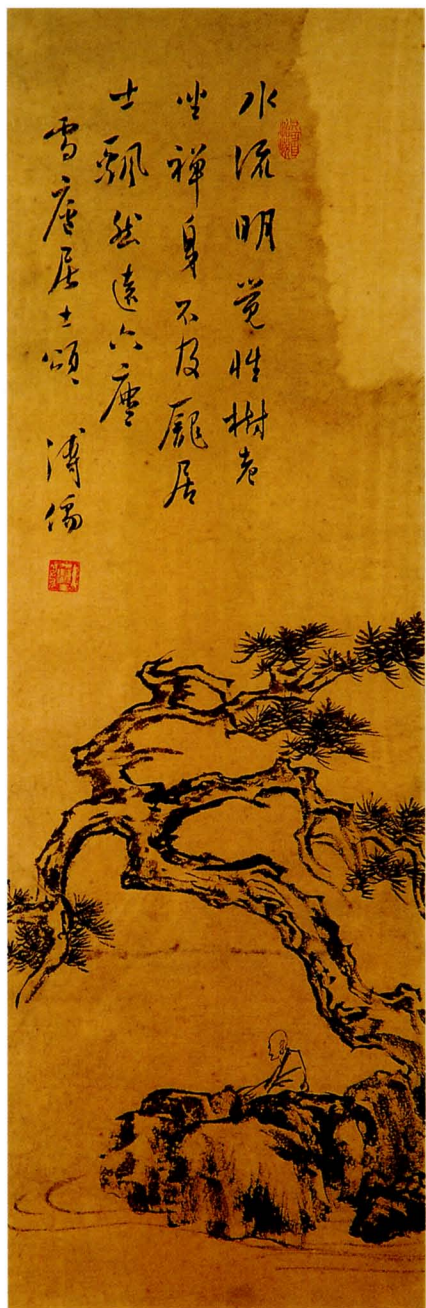 水流明覺性樹老
坐禪身不及龐居
士飄然遠六塵
雪廬居士頌 溥儒